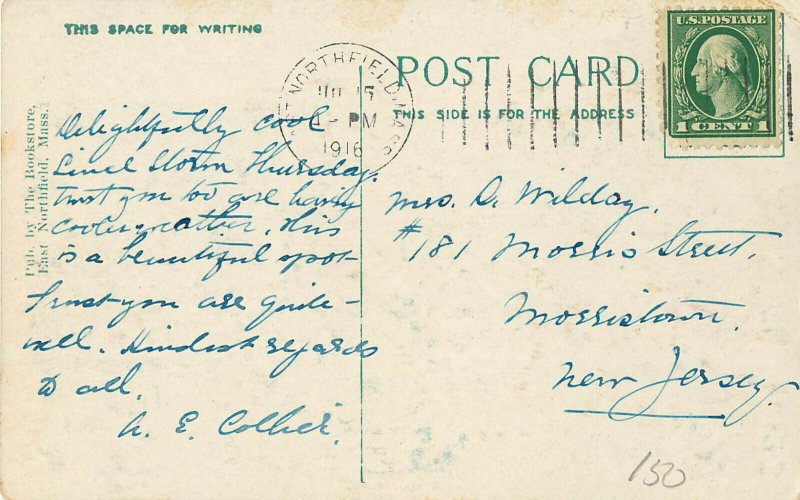 THIS SPACE FOR WRITING
POST CARD
THIS SIDE IS FOR THE ADDRESS
U.S. POSTAGE
1 CENT 1
NORTHFIELD MASS
15
PM
1916
Pub. by The Bookstore,
East Northfield, Mass.
Delightfully cool
Since Storm Thursday.
trust you too are having
cooler weather. This
is a beautiful spot
Trust you are quite
well. Kindest regards
to all.
A. E. Collier.
Mrs. D. Wilday.
#181 Morris Street.
Morristown.
New Jersey.
150